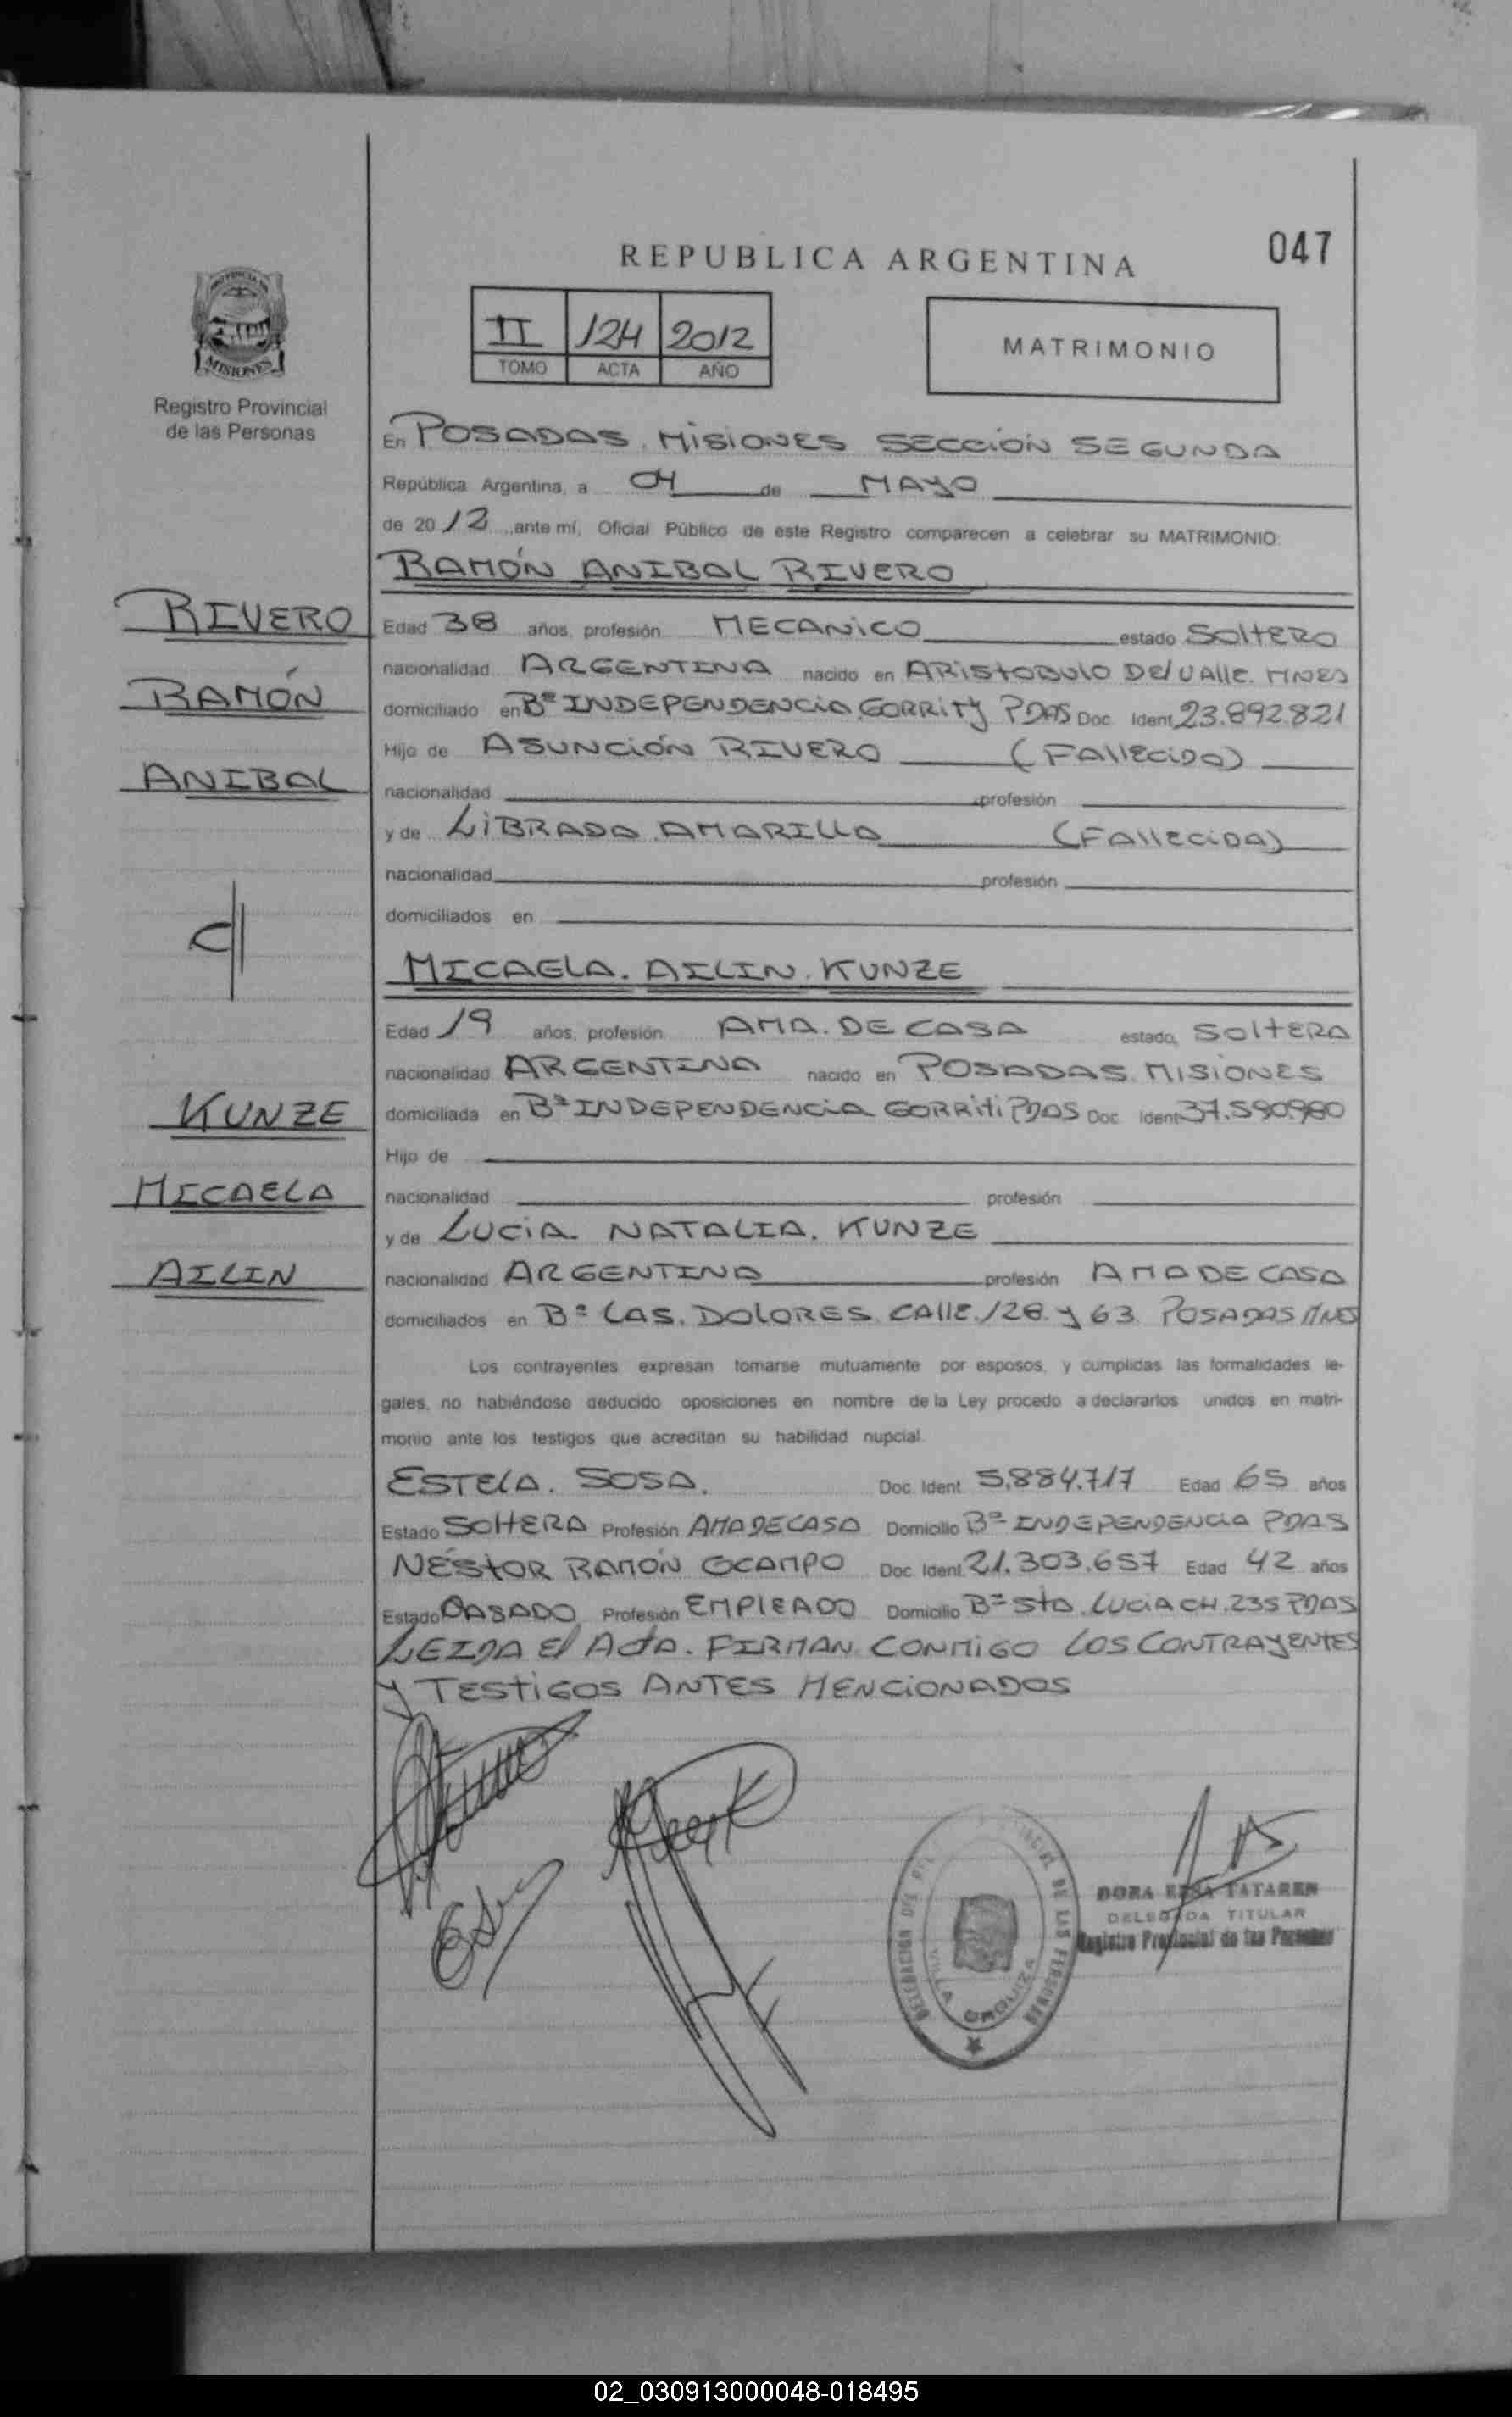 047
REPUBLICA ARGENTINA
PROVINCIA DE
MISIONES
Registro Provincial
de las Personas
II 124 2012
TOMO ACTA AÑO
MATRIMONIO
En POSADAS. MISIONES SECCIÓN SEGUNDA
República Argentina, a 04 de MAYO
de 2012 ante mí, Oficial Público de este Registro comparecen a celebrar su MATRIMONIO:
RAMÓN ANIBAL RIVERO
RIVERO
RAMÓN
ANIBAL
Edad 38 años, profesión MECANICO estado SOLTERO
nacionalidad ARGENTINA nacido en ARISTOBULO DEL VALLE. MNES
domiciliado en Bº INDEPENDENCIA GORRITY PDAS Doc. Ident. 23.892.821
Hijo de ASUNCIÓN RIVERO (FALLECIDO)
nacionalidad profesión
y de LIBRADA AMARILLA (FALLECIDA)
nacionalidad profesión
domiciliados en
C//
MICAELA. AILIN. KUNZE
KUNZE
MICAELA
AILIN
Edad 19 años, profesión AMA. DE CASA estado SOLTERA
nacionalidad ARGENTINA nacido en POSADAS. MISIONES
domiciliada en Bº INDEPENDENCIA GORRITI PDAS Doc. Ident. 37.590.980
Hijo de
nacionalidad profesión
y de LUCIA. NATALIA. KUNZE
nacionalidad ARGENTINA profesión AMA DE CASA
domiciliados en Bº LAS. DOLORES. CALLE. 128. y 63. POSADAS MNES
Los contrayentes expresan tomarse mutuamente por esposos, y cumplidas las formalidades le-
gales, no habiéndose deducido oposiciones en nombre de la Ley procedo a declararlos unidos en matri-
monio ante los testigos que acreditan su habilidad nupcial
ESTELA. SOSA. Doc. Ident. 5.884.717 Edad 65 años
Estado SOLTERA Profesión AMA DE CASA Domicilio Bº INDEPENDENCIA PDAS
NÉSTOR RAMÓN OCAMPO Doc. Ident. 21.303.657 Edad 42 años
Estado CASADO Profesión EMPLEADO Domicilio Bº STA. LUCIA CH. 235 PDAS
LEIDA El ActA. FIRMAN CONMIGO LOS CONTRAYENTES
Y TESTIGOS ANTES MENCIONADOS
DELEGACION DEL PROVINCIAL DE LAS PERSONAS
VILLA URQUIZA
DORA ELSA TATAREN
DELEGADA TITULAR
Registro Provincial de las Personas
02_030913000048-018495